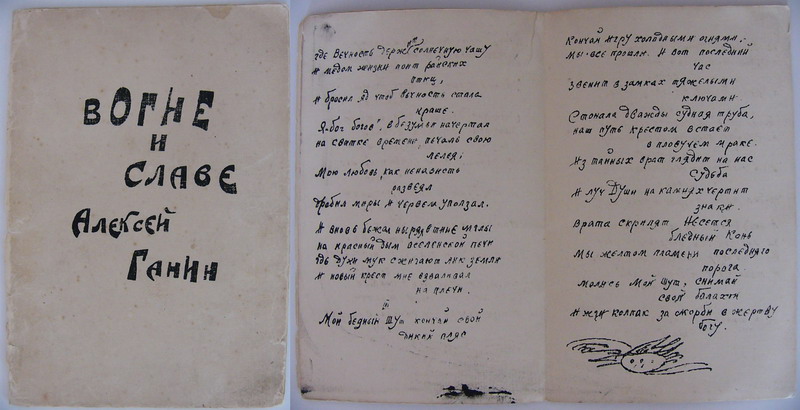 ВОГНЕ
И
СЛАВЕ
АЛЕКСЕЙ
ГАНИН
где Вечность держит солнечную чашу
и медом жизни поит райских
птиц,
и бросил яд чтоб вечность стала
краше.
Я-бог богов, в безумьи начертал
на свитке времени, печаль свою
лелея;
Мою любовь как ненависть
развеял
дробил миры и червем уползал.
и вновь бежал мглы
на красный дым вселенской печи
где духи мук сжигают лик земли
и новый крест мне взваливал
на плечи.
III
Мой бедный шут кончай свой
дикий пляс
Кончай игру холодными огнями.
Мы все прошли. И вот последний
час
звенит в замках тяжелыми
ключами.
Стонала дважды судная труба,
наш суть крестом встает
в пловучем мраке.
Из тайных врат глядит на нас
судьба
и луч Души на камнях чертит
знаки.
Врата скрипят Несется
бледный Конь
Мы желтом пламени последняго
порога.
молись Мой Шут, снимай
свой балахон
и жги колпак за скорби в жертву
богу.